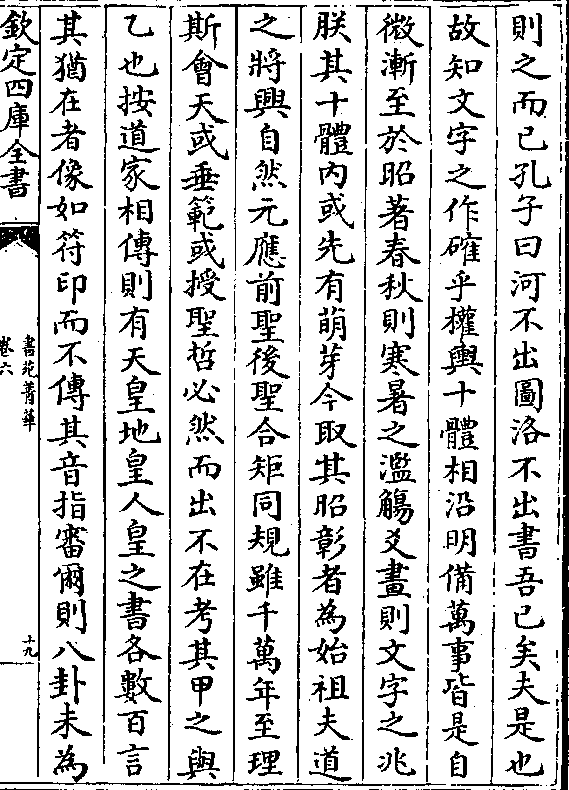 則之而已孔子曰河不出圖洛不出書吾已矣夫是也
故知文字之作確乎權輿十體相沿明備萬事皆是自
微漸至於昭著春秋則寒暑之濫觴爻畫則文字之兆
朕其十體内或先有萌芽今取其昭彰者為始祖夫道
之將興自然元應前聖後聖合矩同規雖千萬年至理
斯會天或垂範或授聖哲必然而出不在考其甲之與
乙也按道家相傳則有天皇地皇人皇之書各數百言
其猶在者像如符印而不傳其音指審爾則八卦未為
欽定四庫全書
書苑菁華
卷六
十九